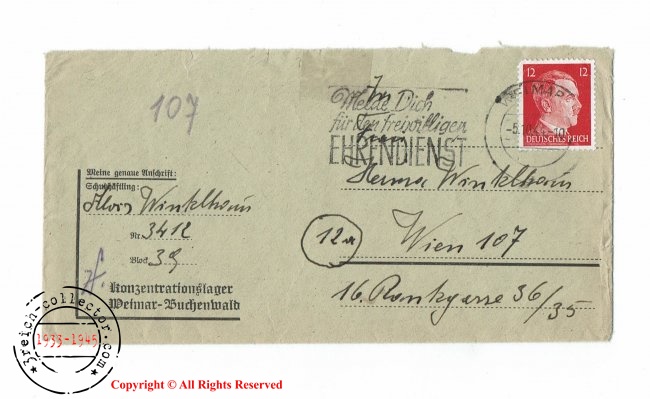 107
An
Melde Dich
für den freiwilligen
Frau
EHRENDIENST
WEIMAR
12 12
DEUTSCHES REICH
Meine genaue Anschrift:
Schutzhäftling:
Alois Winkelhaus
Nr. 3412
Block: 39
Konzentrationslager
Weimar-Buchenwald
Herma Winkelhaus
12a
Wien 107
16.
36/35
3reich-collector.com
1933-1945
Copyright © All Rights Reserved